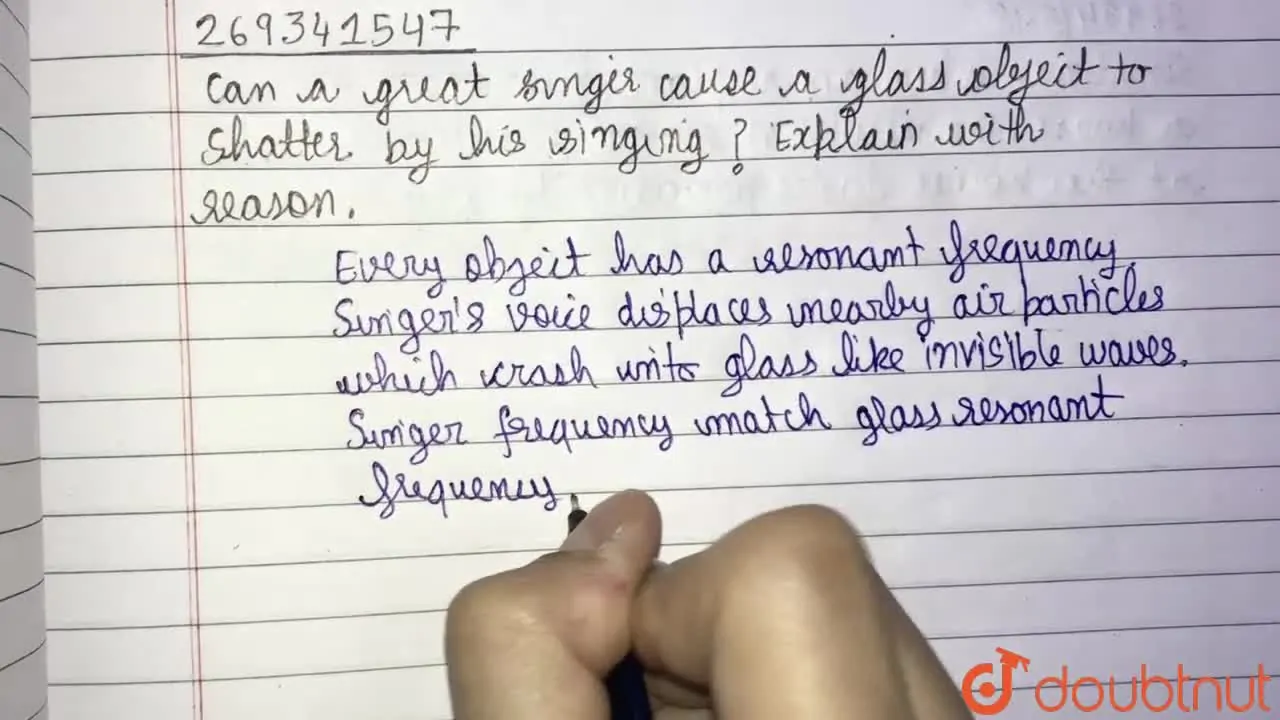 269341547
Can a great singer cause a glass object to
shatter by his singing? Explain with
reason.
Every object has a resonant frequency
Singer's voice displaces nearby air particles
which crash into glass like invisible waves.
Singer frequency match glass resonant
frequency
doubtnut